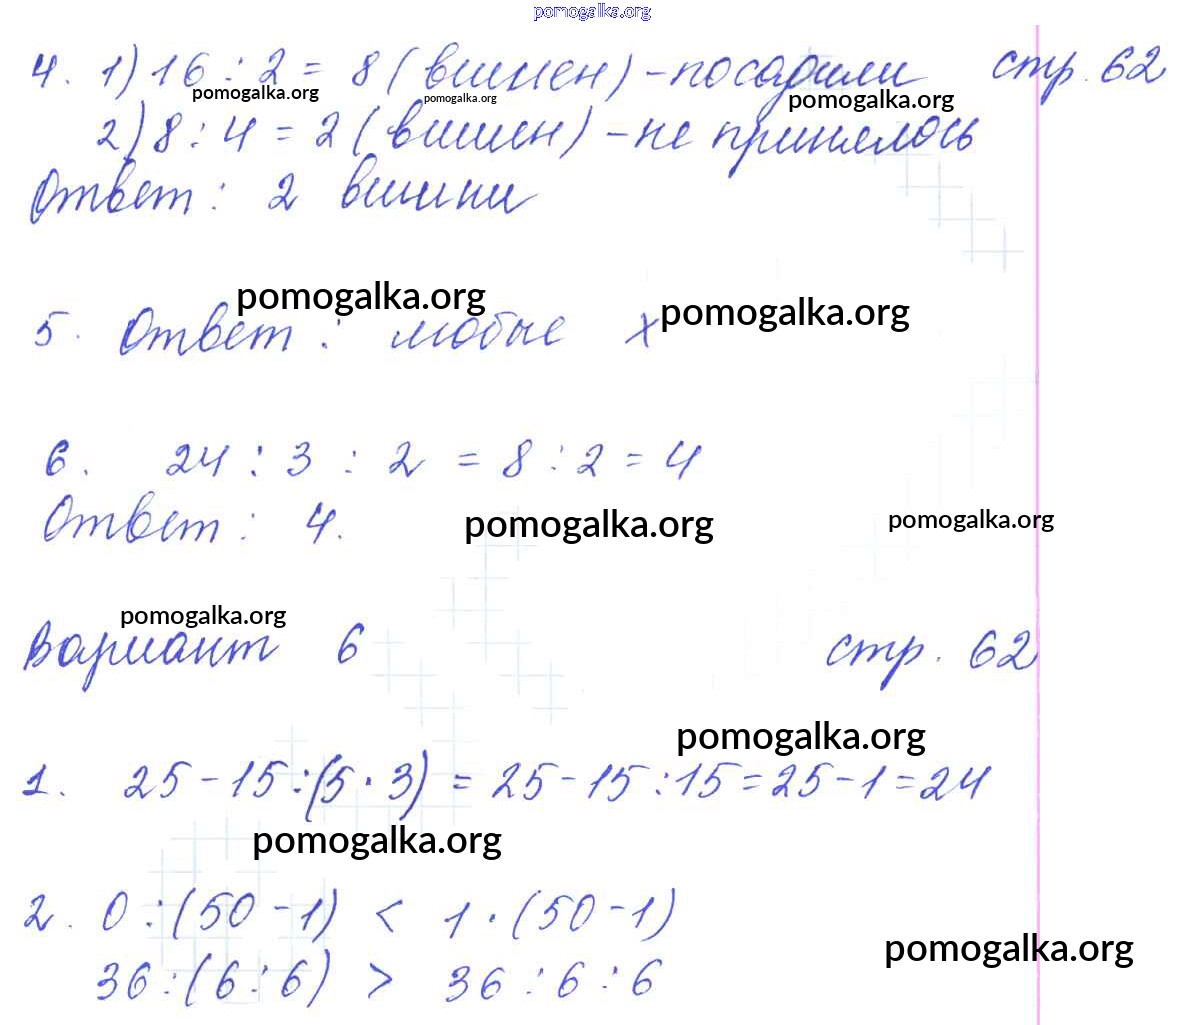 pomogalka.org
4. 1) 16 : 2 = 8 (вишен) - посадили стр. 62
pomogalka.org pomogalka.org pomogalka.org
2) 8 : 4 = 2 (вишен) - не принялось
Ответ : 2 вишни
pomogalka.org pomogalka.org
5. Ответ : любые х
6. 24 : 3 : 2 = 8 : 2 = 4
Ответ : 4.
pomogalka.org pomogalka.org
pomogalka.org
Вариант 6 стр. 62
pomogalka.org
1. 25 - 15 : (5 · 3) = 25 - 15 : 15 = 25 - 1 = 24
pomogalka.org
2. 0 : (50 - 1) < 1 · (50 - 1)
pomogalka.org
36 : (6 : 6) > 36 : 6 : 6